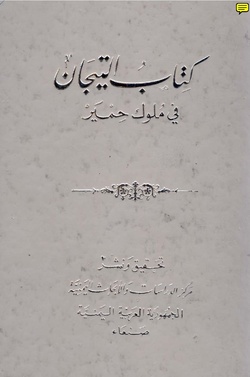 كتاب التيجان
في ملوك حمير
تحقيق ونشر
مركز الدراسات والأبحاث اليمنية
الجمهورية العربية اليمنية
صنعاء